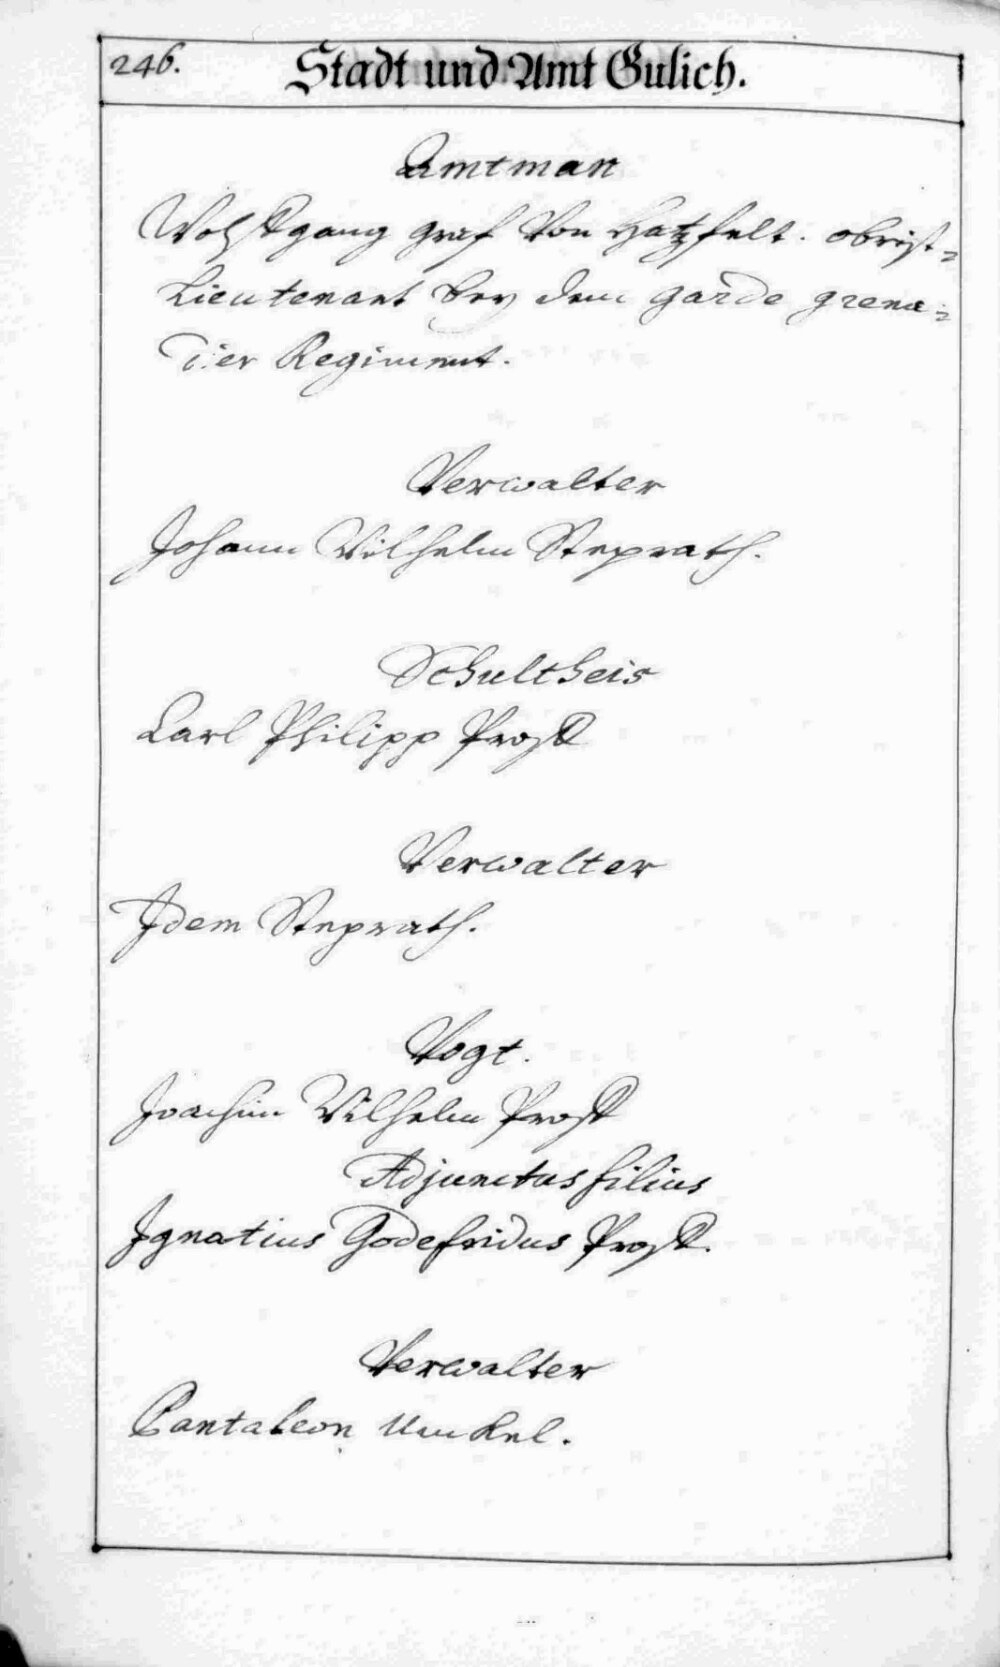 246.
Stadt und Amt Gulich.
Amtman
Wolffgang graf von Hatzfelt. obrist-
Lieutenant bey dem garde grena-
dier Regiment.
Verwalter
Johann Wilhelm Steprath.
Schultheis
Carl Philipp Prost
Verwalter
Idem Steprath.
Vogt.
Joachim Wilhelm Prost
Adjunctus filius
Ignatius Godefridus Prost.
Verwalter
Pantaleon Unckel.